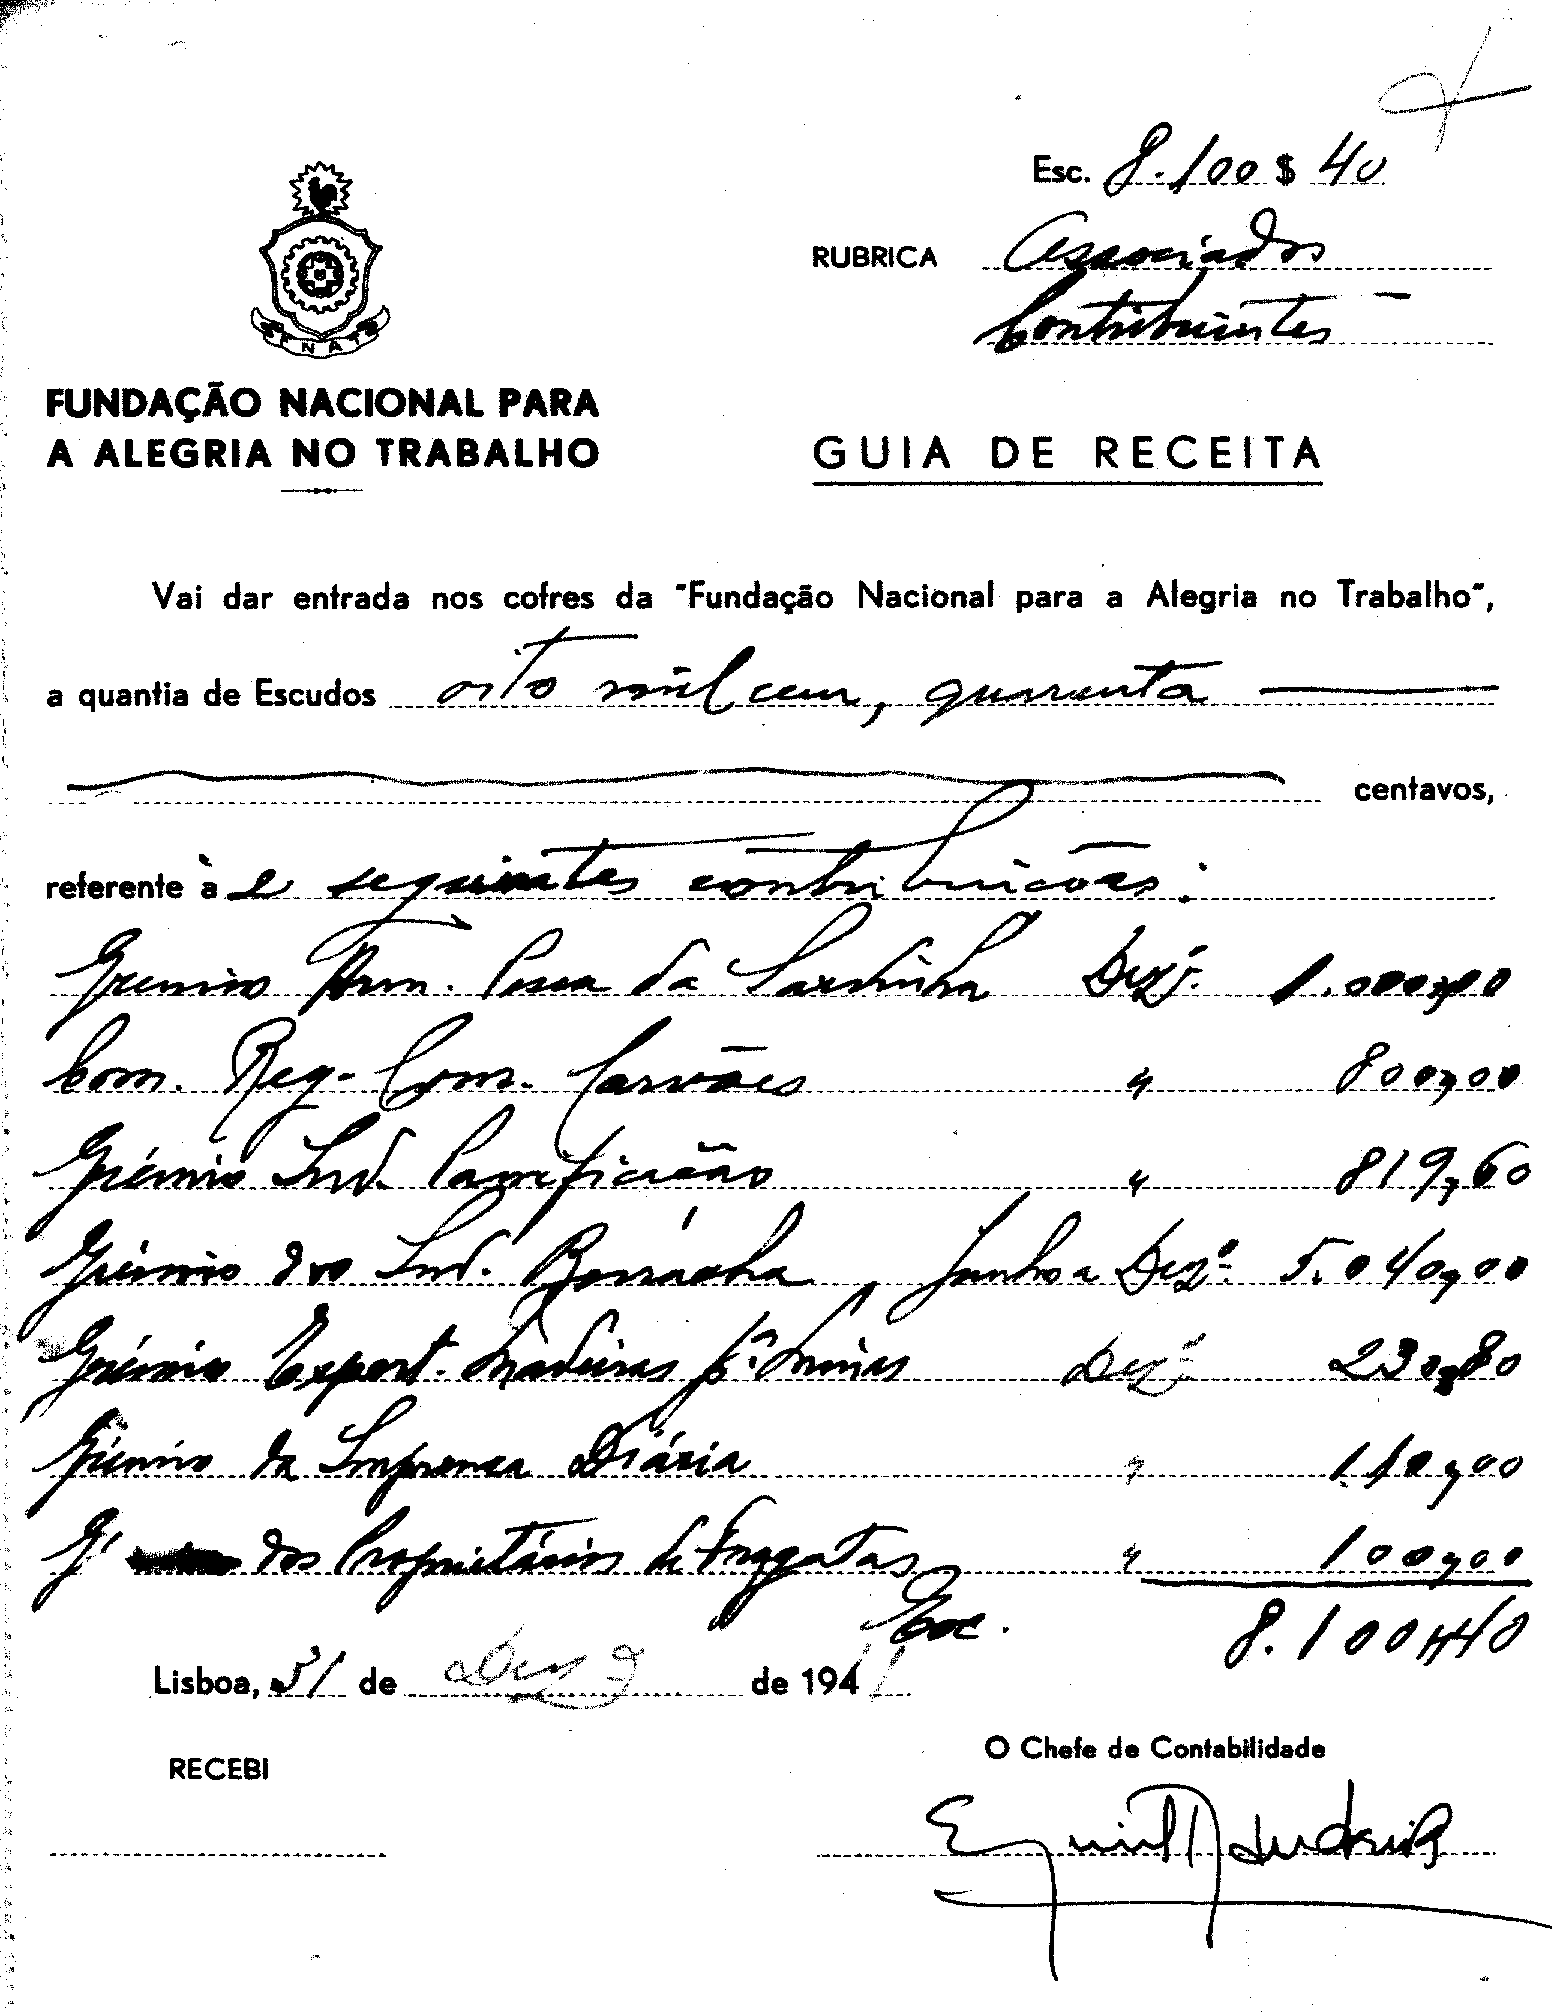 Esc. 8.100 $ 40
RUBRICA Associados
Contribuintes
FNAT
FUNDAÇÃO NACIONAL PARA
A ALEGRIA NO TRABALHO
GUIA DE RECEITA
Vai dar entrada nos cofres da "Fundação Nacional para a Alegria no Trabalho",
a quantia de Escudos oito mil cem, quarenta
centavos,
referente à s seguintes contribuicões:
Gremio Arm. Pesca da Sardinha Dezº. 1.000,00
Com. Reg. Com. Carvões " 800,00
Grémio Ind. Panificação " 819,60
Grémio dos Ind. Borracha, Junho a Dezº. 5.040,00
Grémio Export. Madeiras pª. Minas Dezº 230,80
Grémio da Imprensa Diária " 110,00
G dos Proprietários de Fragatas " 100,00
Esc. 8.100$40
Lisboa, 31 de Dezº de 1941
O Chefe de Contabilidade
RECEBI